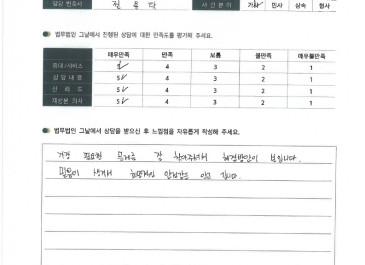 담당 변호사 전 사건분야 가사 민사 상속 형사
법무법인 그날에서 진행된 상담에 대한 만족도를 평가해 주세요.
매우만족 만족 보통 불만족 매우불만족
응대/서비스 5 4 3 2 1
상담내용 5 4 3 2 1
신뢰도 5 4 3 2 1
재상담 의향 5 4 3 2 1
법무법인 그날에서 상담을 받으신 후 느낌점을 자유롭게 작성해 주세요.
가장 필요한 문제를 잘 찾아주셔서 해결방안이 보입니다.
믿음이 생겨 안고 갑니다.